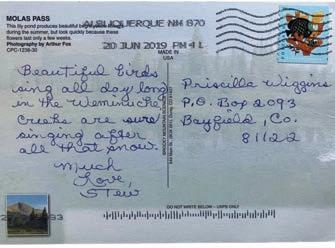 MOLAS PASS
This lily pond produces beautiful
during the summer, but look quickly because these
flowers last only a few weeks.
Photography by Arthur Fox
CPC-1236-30
ALBUQUERQUE NM 870
20 JUN 2019 PM 4 L
MADE IN
USA
Beautiful birds
sing all day long
in the Weminuche
Creeks are sure
singing after
all that snow.
Much
Love,
Stew
Priscilla Wiggins
P.O. Box 2093
Bayfield, Co.
81122
DO NOT WRITE BELOW - USPS ONLY